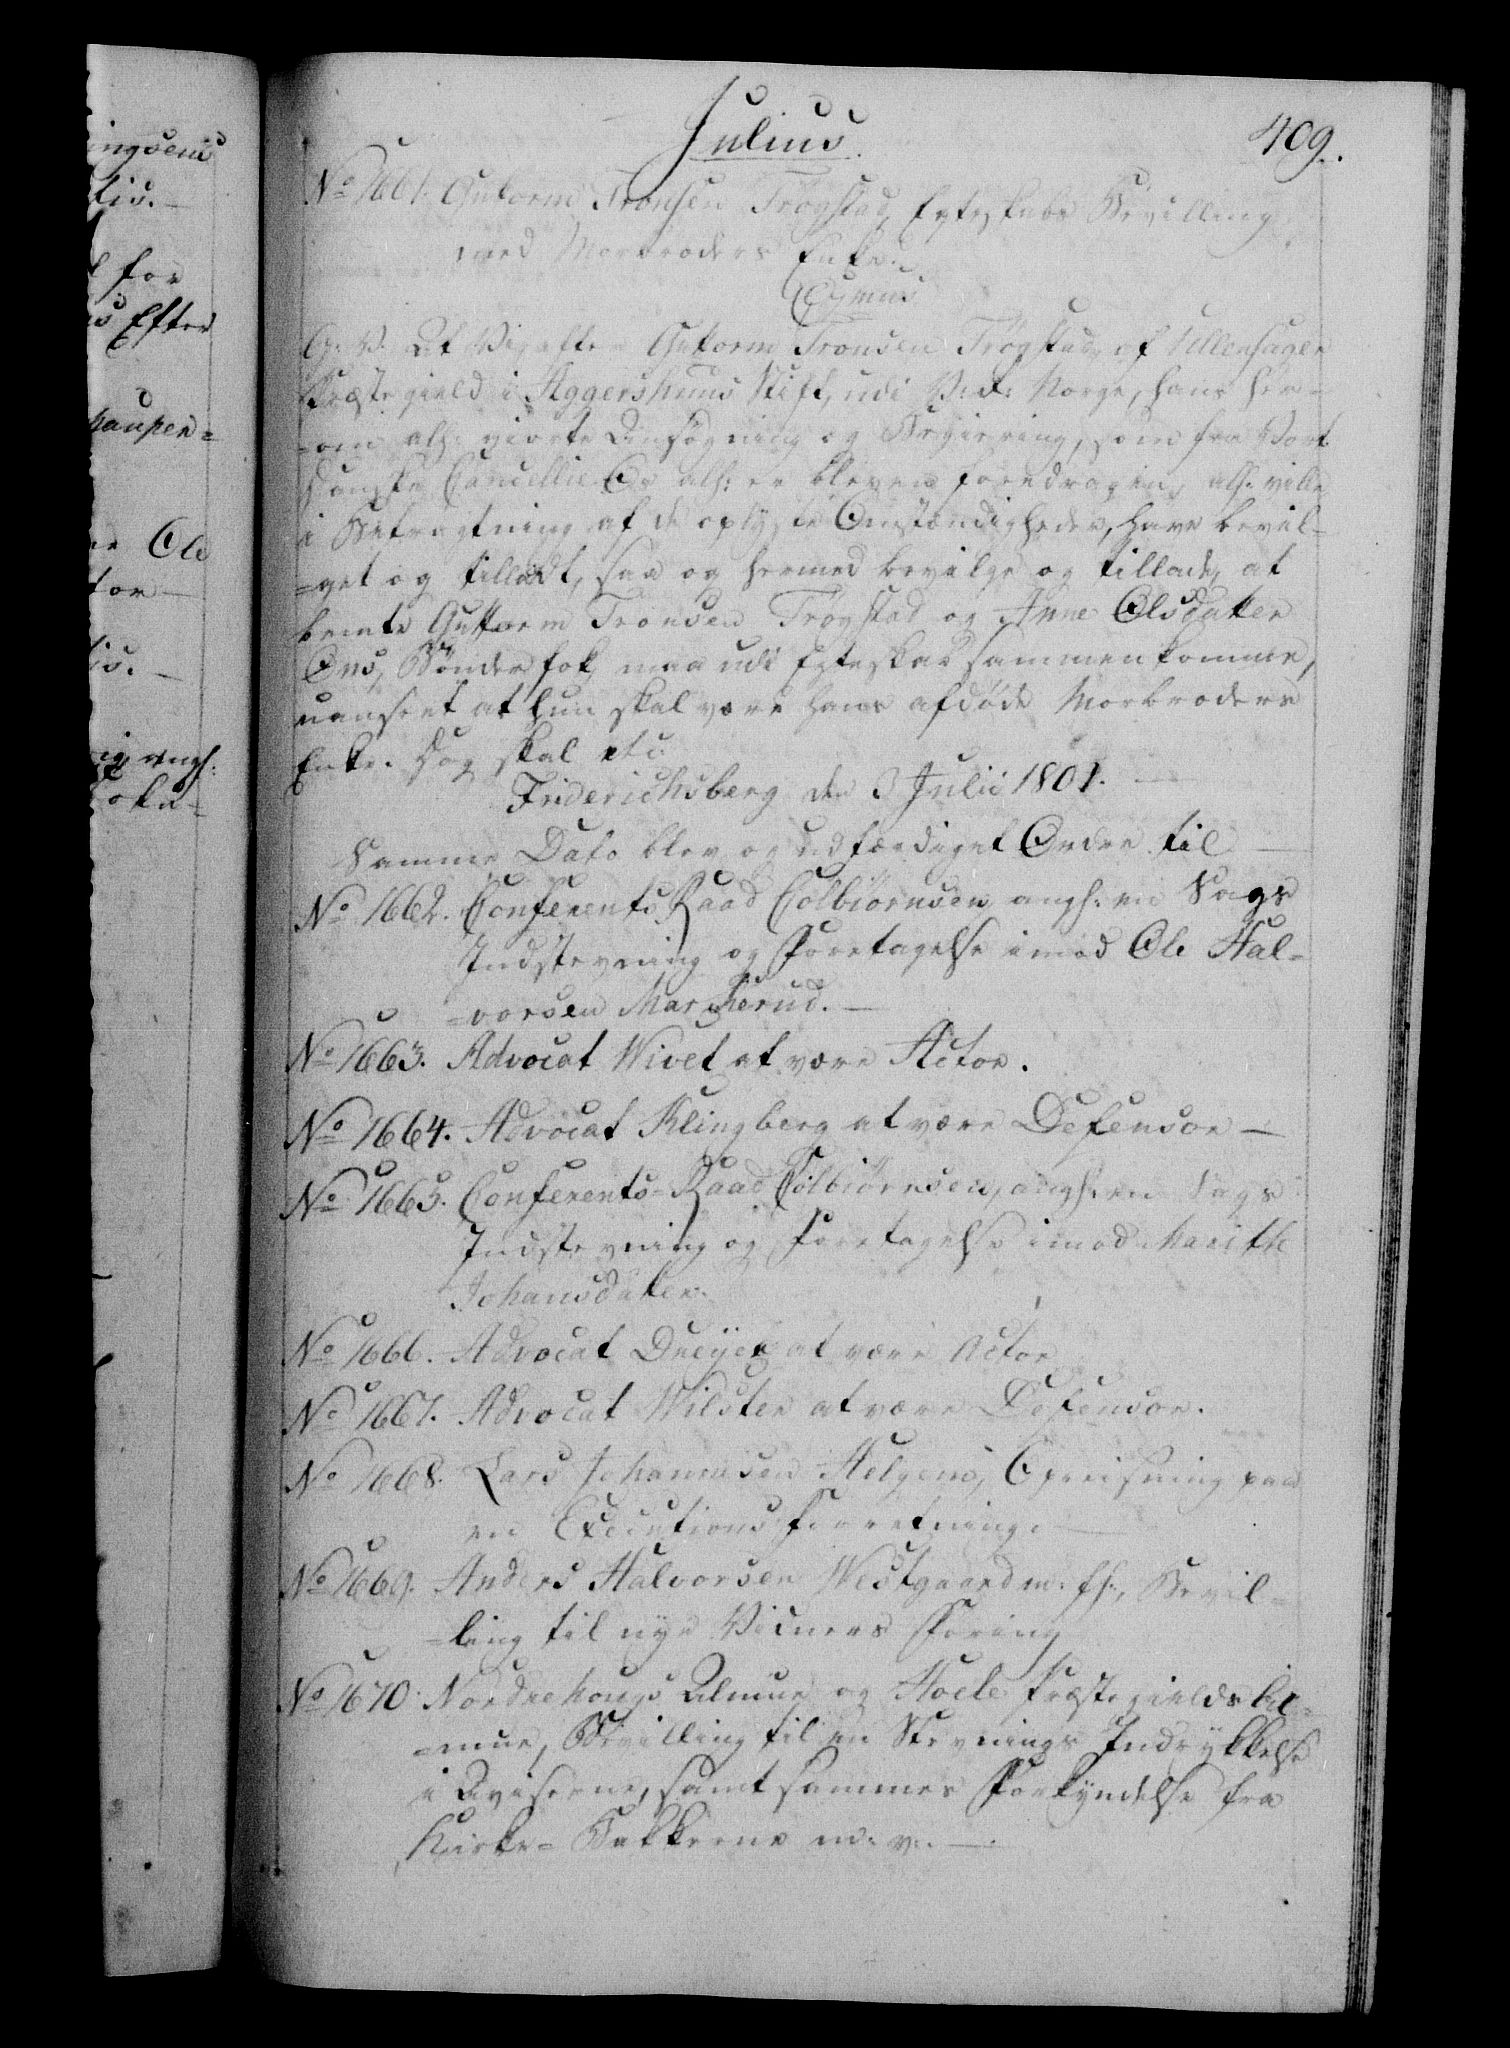 ingsens
tis. —
for
Efter
haupen=
Ole
tor —
tis. —
angs:
Julius.
409.
No 1661. Gutorm Tronsen Trøgstad, Egteskabs Bevilling
med Morbroders Enke.
G: V: At Vi efter Gutorm Tronsen Trøgstad, af Ullensager
Præstegield i Aggershuus Stift, udi V: R: Norge, hans her-
=om all: giorte Ansøgning og Begiering, som fra Vort
danske Cancellie Os all: er bleven foredragen, all: ville
i Betragtning af de oplyste Omstændigheder, have bevil-
=get og tilladt, saa og hermed bevilge og tillade, at
bemte Guttorm Tronsen Trøgstad og Anne Olsdatter
Ons, Bønderfolk, maa udi Egteskab sammenkomme,
uanseet at hun skal være hans afdøde Morbroders
Enke. Dog skal etc.
Friderichsberg den 3 Julii 1801. —
Samme Dato blev og udfærdiget Ordre til —
No 1662. Conferents Raad Colbiørnsen, angs: en Sags
Indstevning og Foretagelse imod Ole Hal=
=vorsen Marcherud. —
No 1663. Advocat Wivet at være Actor.
No 1664. Advocat Klingberg at være Defensor —
No 1665. Conferents=Raad Colbiørnsen, angs: en Sags
Indstevning og Foretagelse imod Marithe
Johansdatter.
No 1666. Advocat Dreyer at være Actor
No 1667. Advocat Wilster at være Defensor.
No 1668. Lars Johannesen Helgens, Opreisning paa
en Executions Forretning. —
No 1669. Anders Halvorsen Westgaard m: fl:, Bevil=
=ling til nye Vidners Føring
No 1670. Nordrehougs Almue og Hoele Præstegields Al=
=mue, Bevilling til en Stevnings Indrykkelse
i Aviserne, samt sammes Forkyndelse fra
Kirke=Bakkerne m: v: —